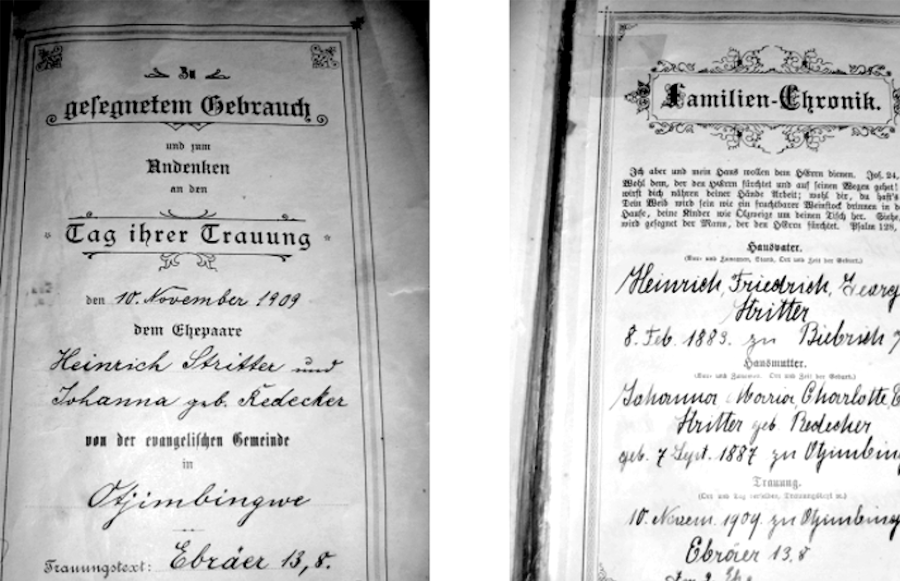 Zu
gesegnetem Gebrauch
und zum
Andenken
an den
Tag ihrer Trauung
den 10. November 1909
dem Ehepaare
Heinrich Stritter und
Johanna geb. Redecker
von der evangelischen Gemeinde
in
Otjimbingwe
Trauungstext: Ebräer 13,8.
Familien-Chronik.
Ich aber und mein Haus wollen dem HErrn dienen. Jos. 24,
Wohl dem, der den HErrn fürchtet und auf seinen Wegen gehet!
wirst dich nähren deiner Hände Arbeit; wohl dir, du hast's
Dein Weib wird sein wie ein fruchtbarer Weinstock drinnen in d
Hause, deine Kinder wie Ölzweige um deinen Tisch her. Siehe,
wird gesegnet der Mann, der den HErrn fürchtet. Psalm 128,
Hausvater.
(Vor- und Zunamen, Stand, Ort und Zeit der Geburt.)
Heinrich, Friedrich, Georg
Stritter
8. Feb. 1883. zu Biebrich
Hausmutter.
(Vor- und Zunamen. Ort und Zeit der Geburt.)
Johanna Maria, Charlotte, E
Stritter geb Redecker
geb. 7 Sept. 1887 zu Otjimbing
Trauung.
(Ort und Tag derselben, Trauungstext u.)
10. Novem. 1909. zu Otjimbing
Ebräer 13. 8